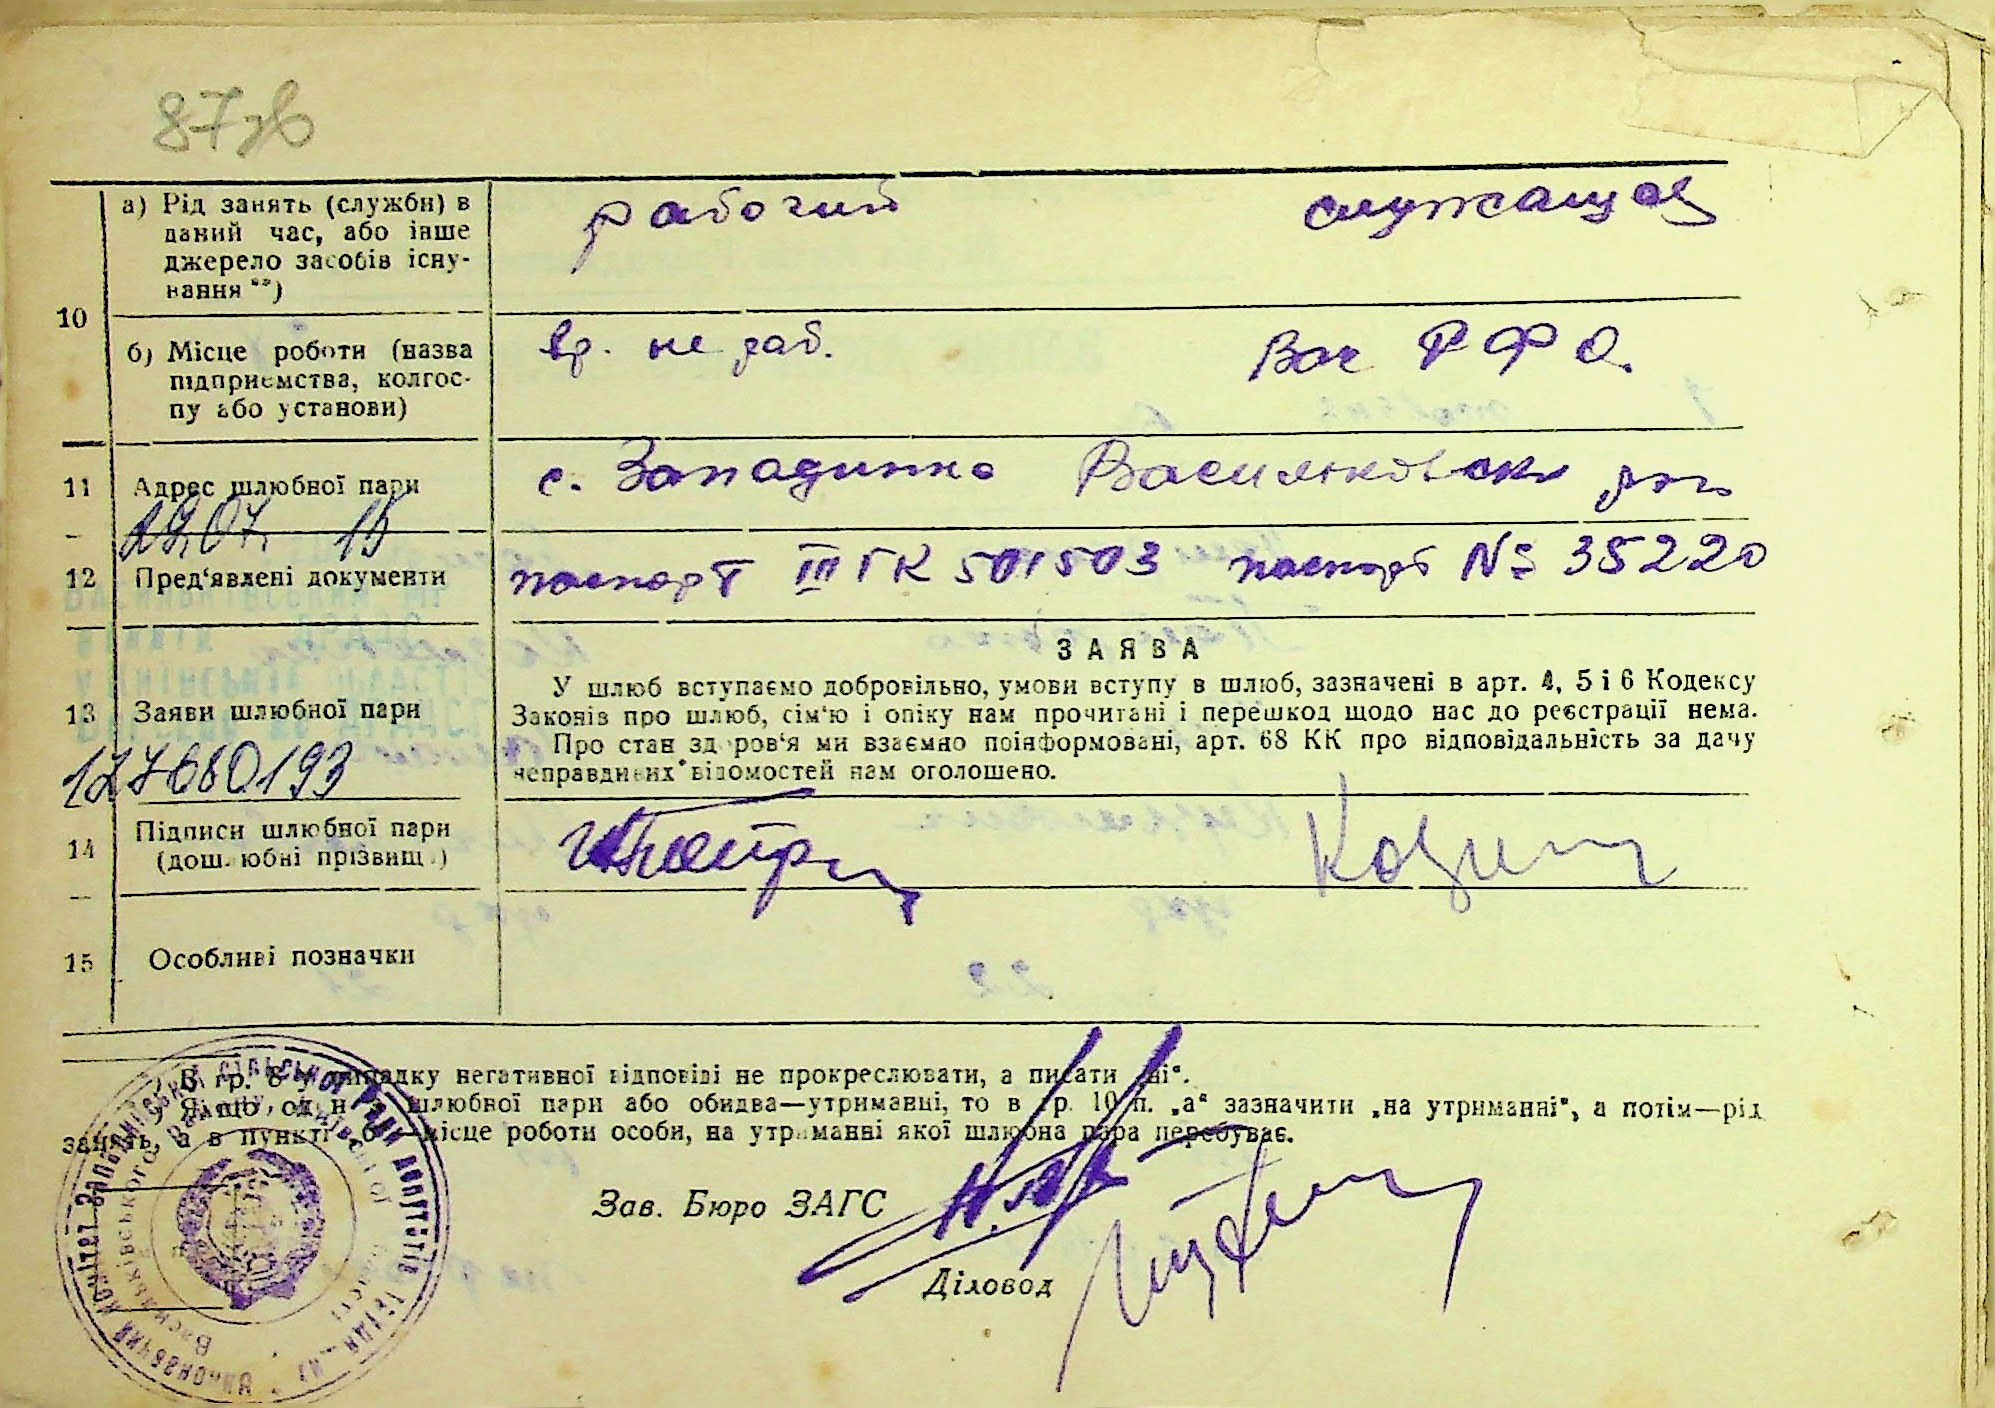 87зв
10
а) Рід занять (служби) в
даний час, або інше
джерело засобів існу-
вання **)
рабочий
служащая
б) Місце роботи (назва
підприємства, колгос-
пу або установи)
вр. не раб.
Вас РФО.
11
Адрес шлюбної пари
с. Западинка Васильковск
29.07. 15
12
Пред'явлені документи
паспорт III ГК 501503 паспорт № 35220
13
Заяви шлюбної пари
ЗАЯВА
У шлюб вступаємо добровільно, умови вступу в шлюб, зазначені в арт. 4, 5 і 6 Кодексу
Законів про шлюб, сім'ю і опіку нам прочитані і перешкод щодо нас до реєстрації нема.
Про стан здоров'я ми взаємно поінформовані, арт. 68 КК про відповідальність за дачу
неправдивих відомостей нам оголошено.
127680193
14
Підписи шлюбної пари
(дошлюбні прізвища)
15
Особливі позначки
*) В гр. 8 у випадку негативної відповіді не прокреслювати, а писати „ні“.
**) Якщо один з шлюбної пари або обидва—утриманні, то в гр. 10 п. „а“ зазначити „на утриманні“, а потім—рід
занять, а в пункті „б“—місце роботи особи, на утриманні якої шлюбна пара перебуває.
Зав. Бюро ЗАГС
Діловод
Виконавчий комітет Западинської сільської Ради депутатів
Васильківського району, Київської області